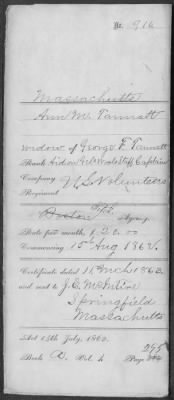 No. 916
Massachusetts
Ann M. Tannatt
widow of George F. Tannatt
Rank
Captain
Company U.S. Volunteers
Regiment
Boston Agency.
Rate per month, $20.00
Commencing 15 Aug 1862.
Certificate dated 11 Mch 1863
and sent to J. E. McIntire
Springfield
Massachusetts
Act 14th July, 1862.
Book A Vol. 1 Page
265